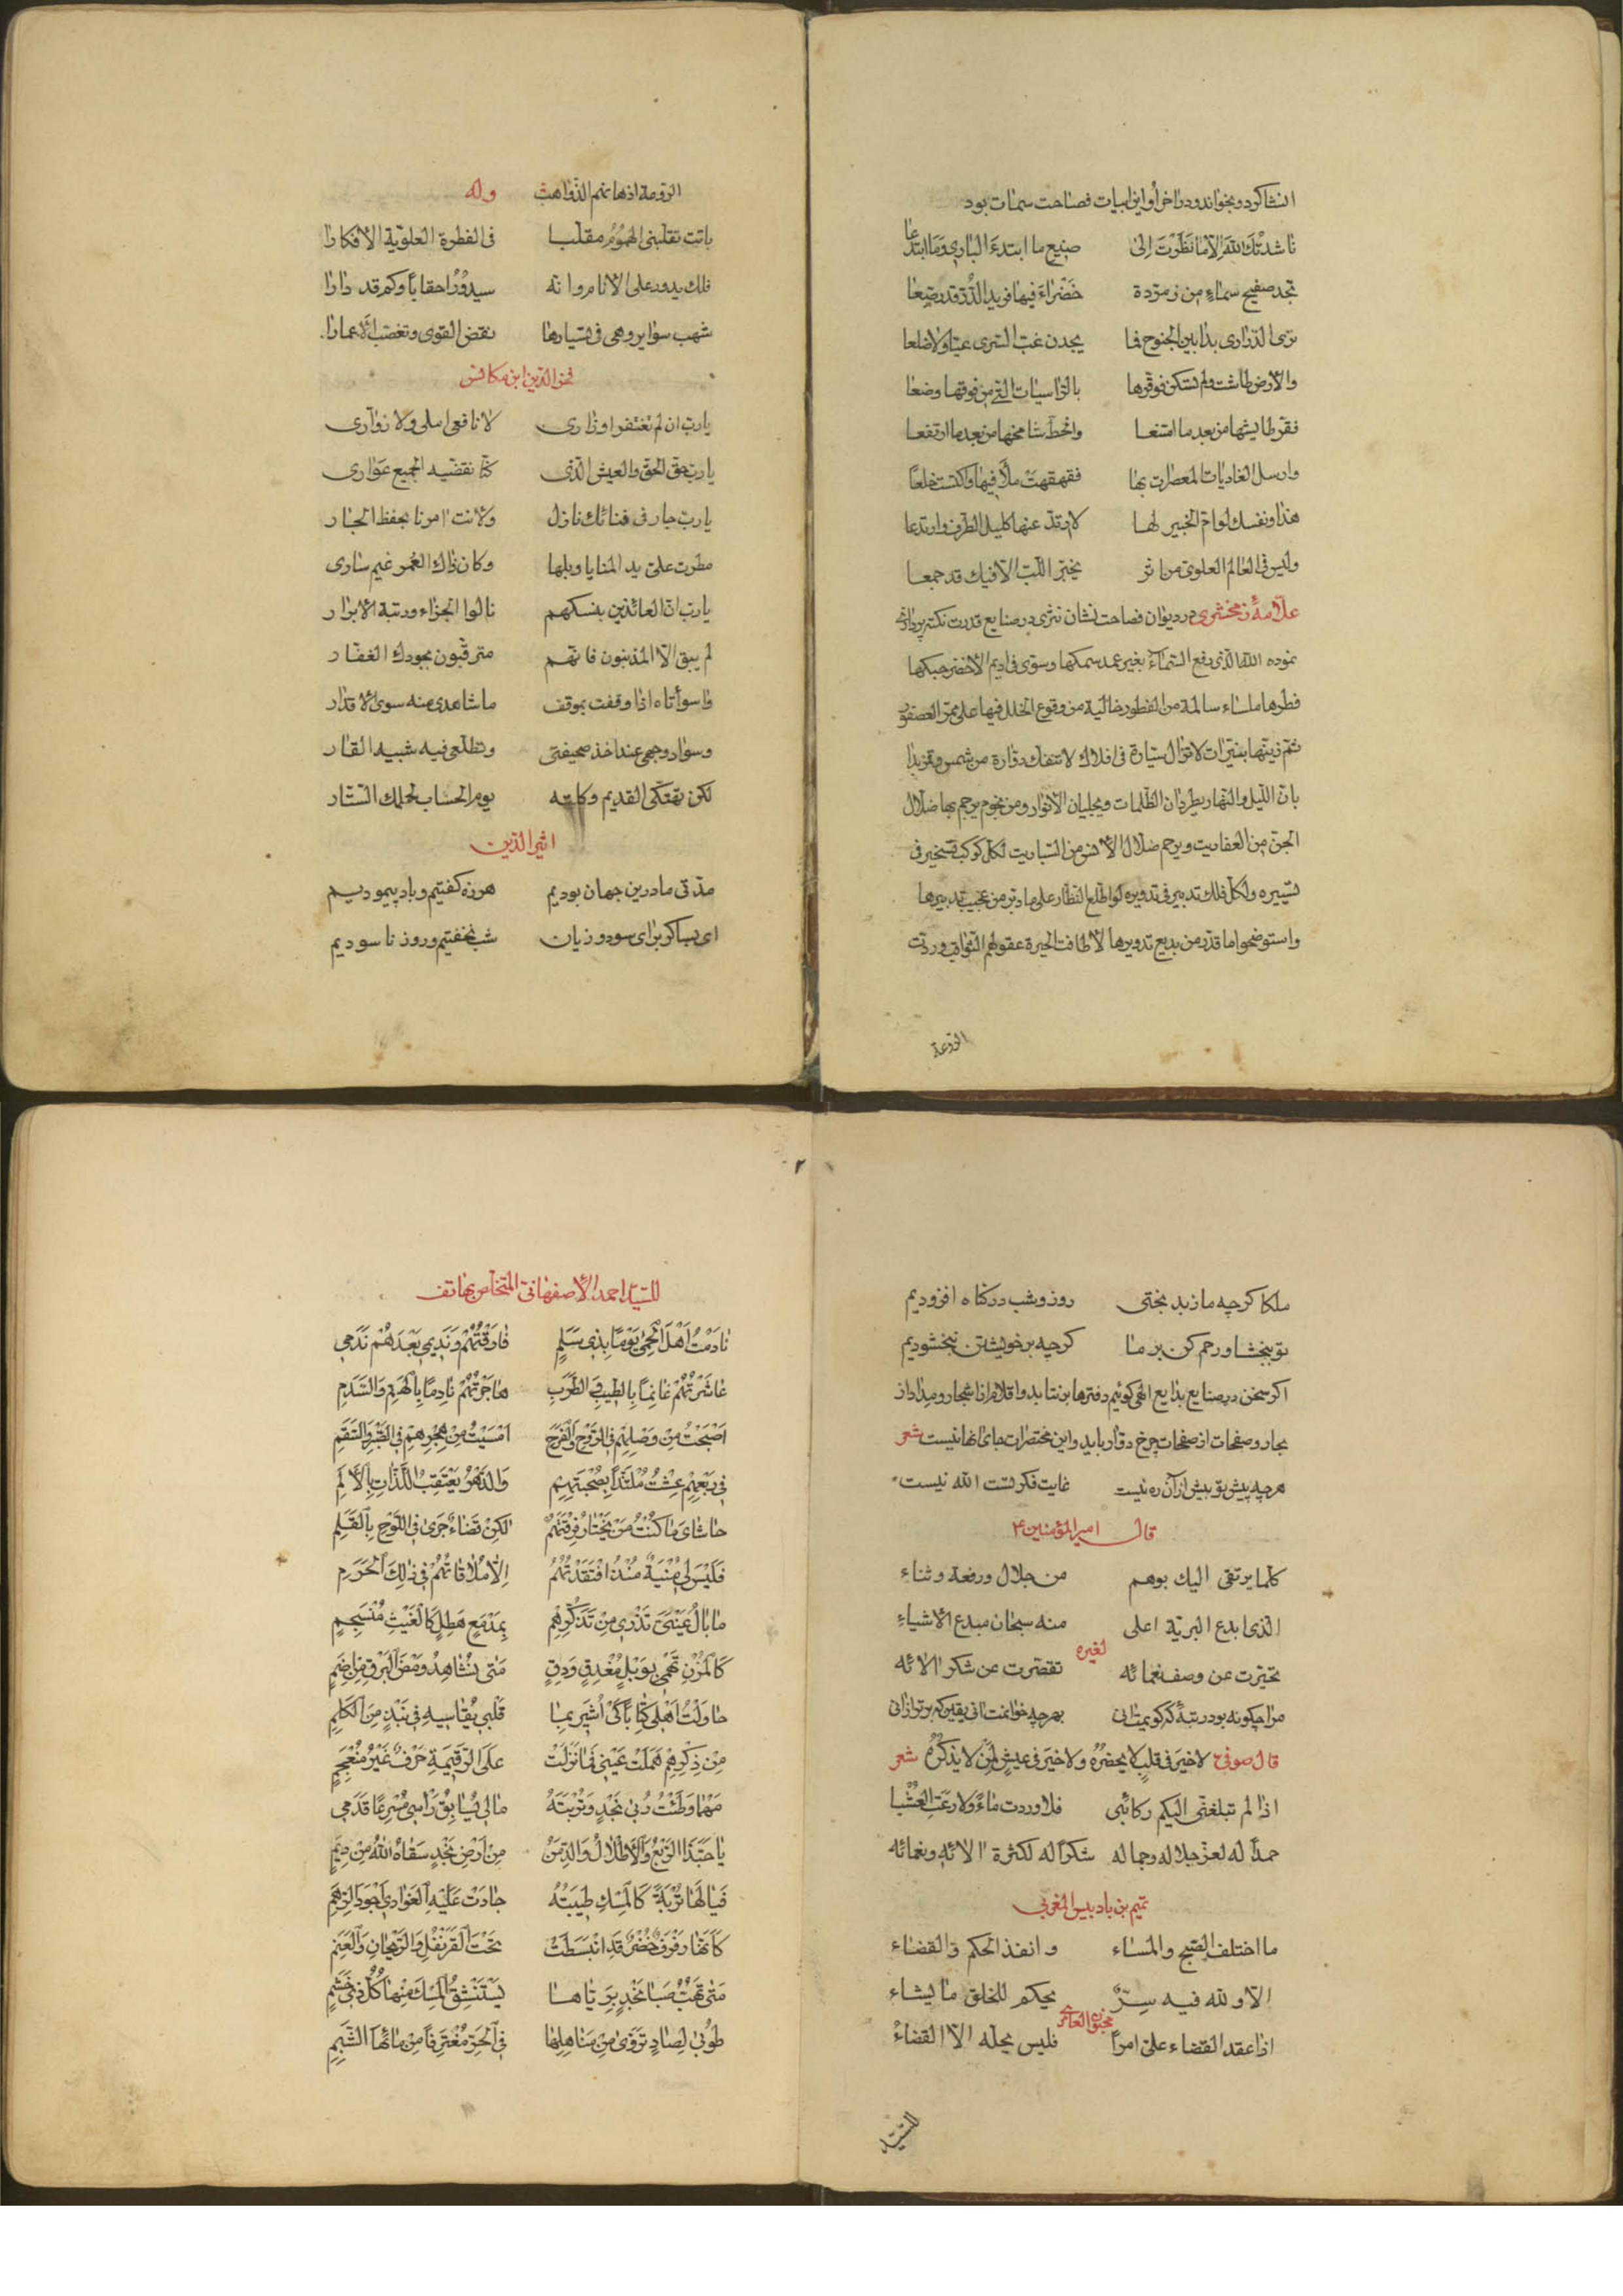 انشا کرد و بخواند و در آخر او این ابیات فصاحت سمات بود
ناشدتك الله الا ما نظرت الى صنیع ما ابتدء الباری وما ابتدعا
تجد صفیح سماء من زمردة خضراء فیها فرید الدر قد رصعا
تری الدراری بدا بین الجنوح فما یجدن غب السری عیا ولا ضلعا
والارض طاشت ولم تسکن فوقرها بالراسیات التی من فوقها وضعا
فقر طایشها من بعد ما امتنعا وانحط شامخها من بعد ما ارتفعا
وارسل الغادیات المعصرات بها فقهقهت ملأ فیها واکتست خلعا
هذا ونفسك لو رام الخبیر لها لارتد عنها کلیل الطرف وارتدعا
ولیس فی العالم العلوی من اثر یحیر اللب الا فیك قد جمعا
علامهٔ زمخشری در دیوان فصاحت نشان نثری در صنایع قدرت نکته پردازی
نموده الله الذی رفع السماء بغیر عمد سمکها وسوی فی ادیم الاخضر حبکها
فطرها ملساء سالمة من الفطور خالیة من وقوع الخلل فیها علی ممر العصور
ثم زینها بنیرات لا تزال سیارة فی افلاك لا تنفك دوارة من شمس وقمر یدا
بان اللیل والنهار یطردان الظلمات ویجلیان الانوار ومن نجوم یرجم بها ضلال
الجن من العفاریت ویرحم ضلال الانس من السباریت لکل کوکب تسخیر فی
تسییره ولکل فلك تدبیر فی تدویره لو اطلع النظار علی ما دبر من عجیب تدبیرها
واستوضحوا ما قدر من بدیع تدویرها لاطافت الحیرة عقولهم الثواقب وردت
الرومة اذهانهم الذواهب وله
باتت تقلبنی الهموم مقلبا فی الفطرة العلویة الافکارا
فلك یدور علی الانام وانه سیدور احقابا وکم قد دارا
شهب سوایر وهی فی تسیارها نقض القوی وتغصب الاعمارا
فخر الدین ابن مکانس
یا رب ان لم تغتفر اوزاری لا نافعی املی ولا زواری
یا رب حق الحق والعیش الذی کنا نقضیه الجمیع عواری
یا رب جار فی فنائك نازل ولانت امرنا بحفظ الجار
مطرت علی ید المنایا وبلها وکان ذاك العمر غیم ساری
یا رب ان العائذین بنسکهم نالوا الجزاء ورتبة الابرار
لم یبق الا المذنبون فانهم مترقبون بجودك الغفار
واسوأتاه اذا وقفت بموقف ما شاهدی منه سوی الاقدار
وسواد وجهی عند اخذ صحیفتی وتطلعی فیه شبیه القار
لکن تهتکی القدیم وکلته یوم الحساب لحلمك الستار
اثیر الدین
مدتی ما درین جهان بودیم هرزه گفتیم و باد پیمودیم
ای بسا کز برای سود و زیان شب نخفتیم و روز ناسودیم
ملکا گرچه ما ز بدبختی روز و شب در گناه افزودیم
تو ببخشا و رحم کن بر ما گرچه بر خویشتن نبخشودیم
اگر سخن در صنایع بدایع الهی گوئیم دفترها برنتابد و اقلام از اشجار و مداد از
بحار و صفحات از صفحات چرخ دوار باید و این مختصرات جای آنها نیست شعر
هرچه پیش تو بیش از آن ره نیست غایت فکر تست الله نیست
قال امیر المؤمنین ع
کلما یرتقی الیك بوهم من جلال ورفعة وثناء
الذی ابدع البریة اعلی منه سبحان مبدع الاشیاء
لغیره
تحیرت عن وصف نعمائه تقصرت عن شکر الائه
مرا چگونه بود رتبهٔ که گویمت آنی بهرچه خوانمت آنی یقین که برتر ازانی
قال صوفی لا خیر فی قلب لا یحضره ولا خیر فی عیش لمن لا یذکره شعر
اذا لم تبلغنی الیکم رکائبی فلا وردت ماء ولا رعت العشبا
حمدا له لعز جلاله وجماله شکرا له لکثرة الائه ونعمائه
تمیم بن بادیس المغربی
ما اختلف الصبح والمساء وانفذ الحکم والقضاء
الا ولله فیه سر یحکم للخلق ما یشاء
مجنون العامری
اذا عقد القضاء علی امرا فلیس یحله الا القضاء
للسید
للسید احمد الاصفهانی المتخلص بهاتف
نادمت اهل الحمی یوما بذی سلم فارقتهم وندیمی بعدهم ندمی
عاشرتهم غانما بالطیب والطرب هاجرتهم نادما بالهم والسدم
اصبحت من وصلهم فی الروح والفرح امسیت من هجرهم فی الضر والسقم
فی ربعهم عشت ملتذا بصحبتهم والدهر یعتقب اللذات بالالم
حاشای ما کنت من یختار فرقتهم لکن قضاء جری فی اللوح بالقلم
فلیس لی منیة منذ افتقدتهم الا ملاقاتهم فی ذلك الحرم
ما بال عینی تذری من تذکرهم بمدمع هطل کالغیث منسجم
کالمزن تهمی بوبل مغدق ودق متی یشاهد ومض البرق من اضم
حاولت اهلی کتابا کی اشیر بما قلبی یقاسیه فی نبذ من الکلم
من ذکرهم هملت عینی فما نزلت علی الرقیمة حرف غیر منعجم
مهما وطئت ربی نجد وتربته مالی یسابق رأسی مسرعا قدمی
یا حبذا الربع والاطلال والدمن من ارض نجد سقاه الله من دیم
فیالها تربة کالمسك طیبته جادت علیه الغوادی اجود الرهم
کانها رفرف خضر قد انبسطت تحت القرنفل والریحان والعنم
متی تهب صبا نجد بریاها یستنشق المسك منها کل ذی خشم
طوبی لصاد تروی من مناهلها فی الحر مغترفا من مائها الشبم